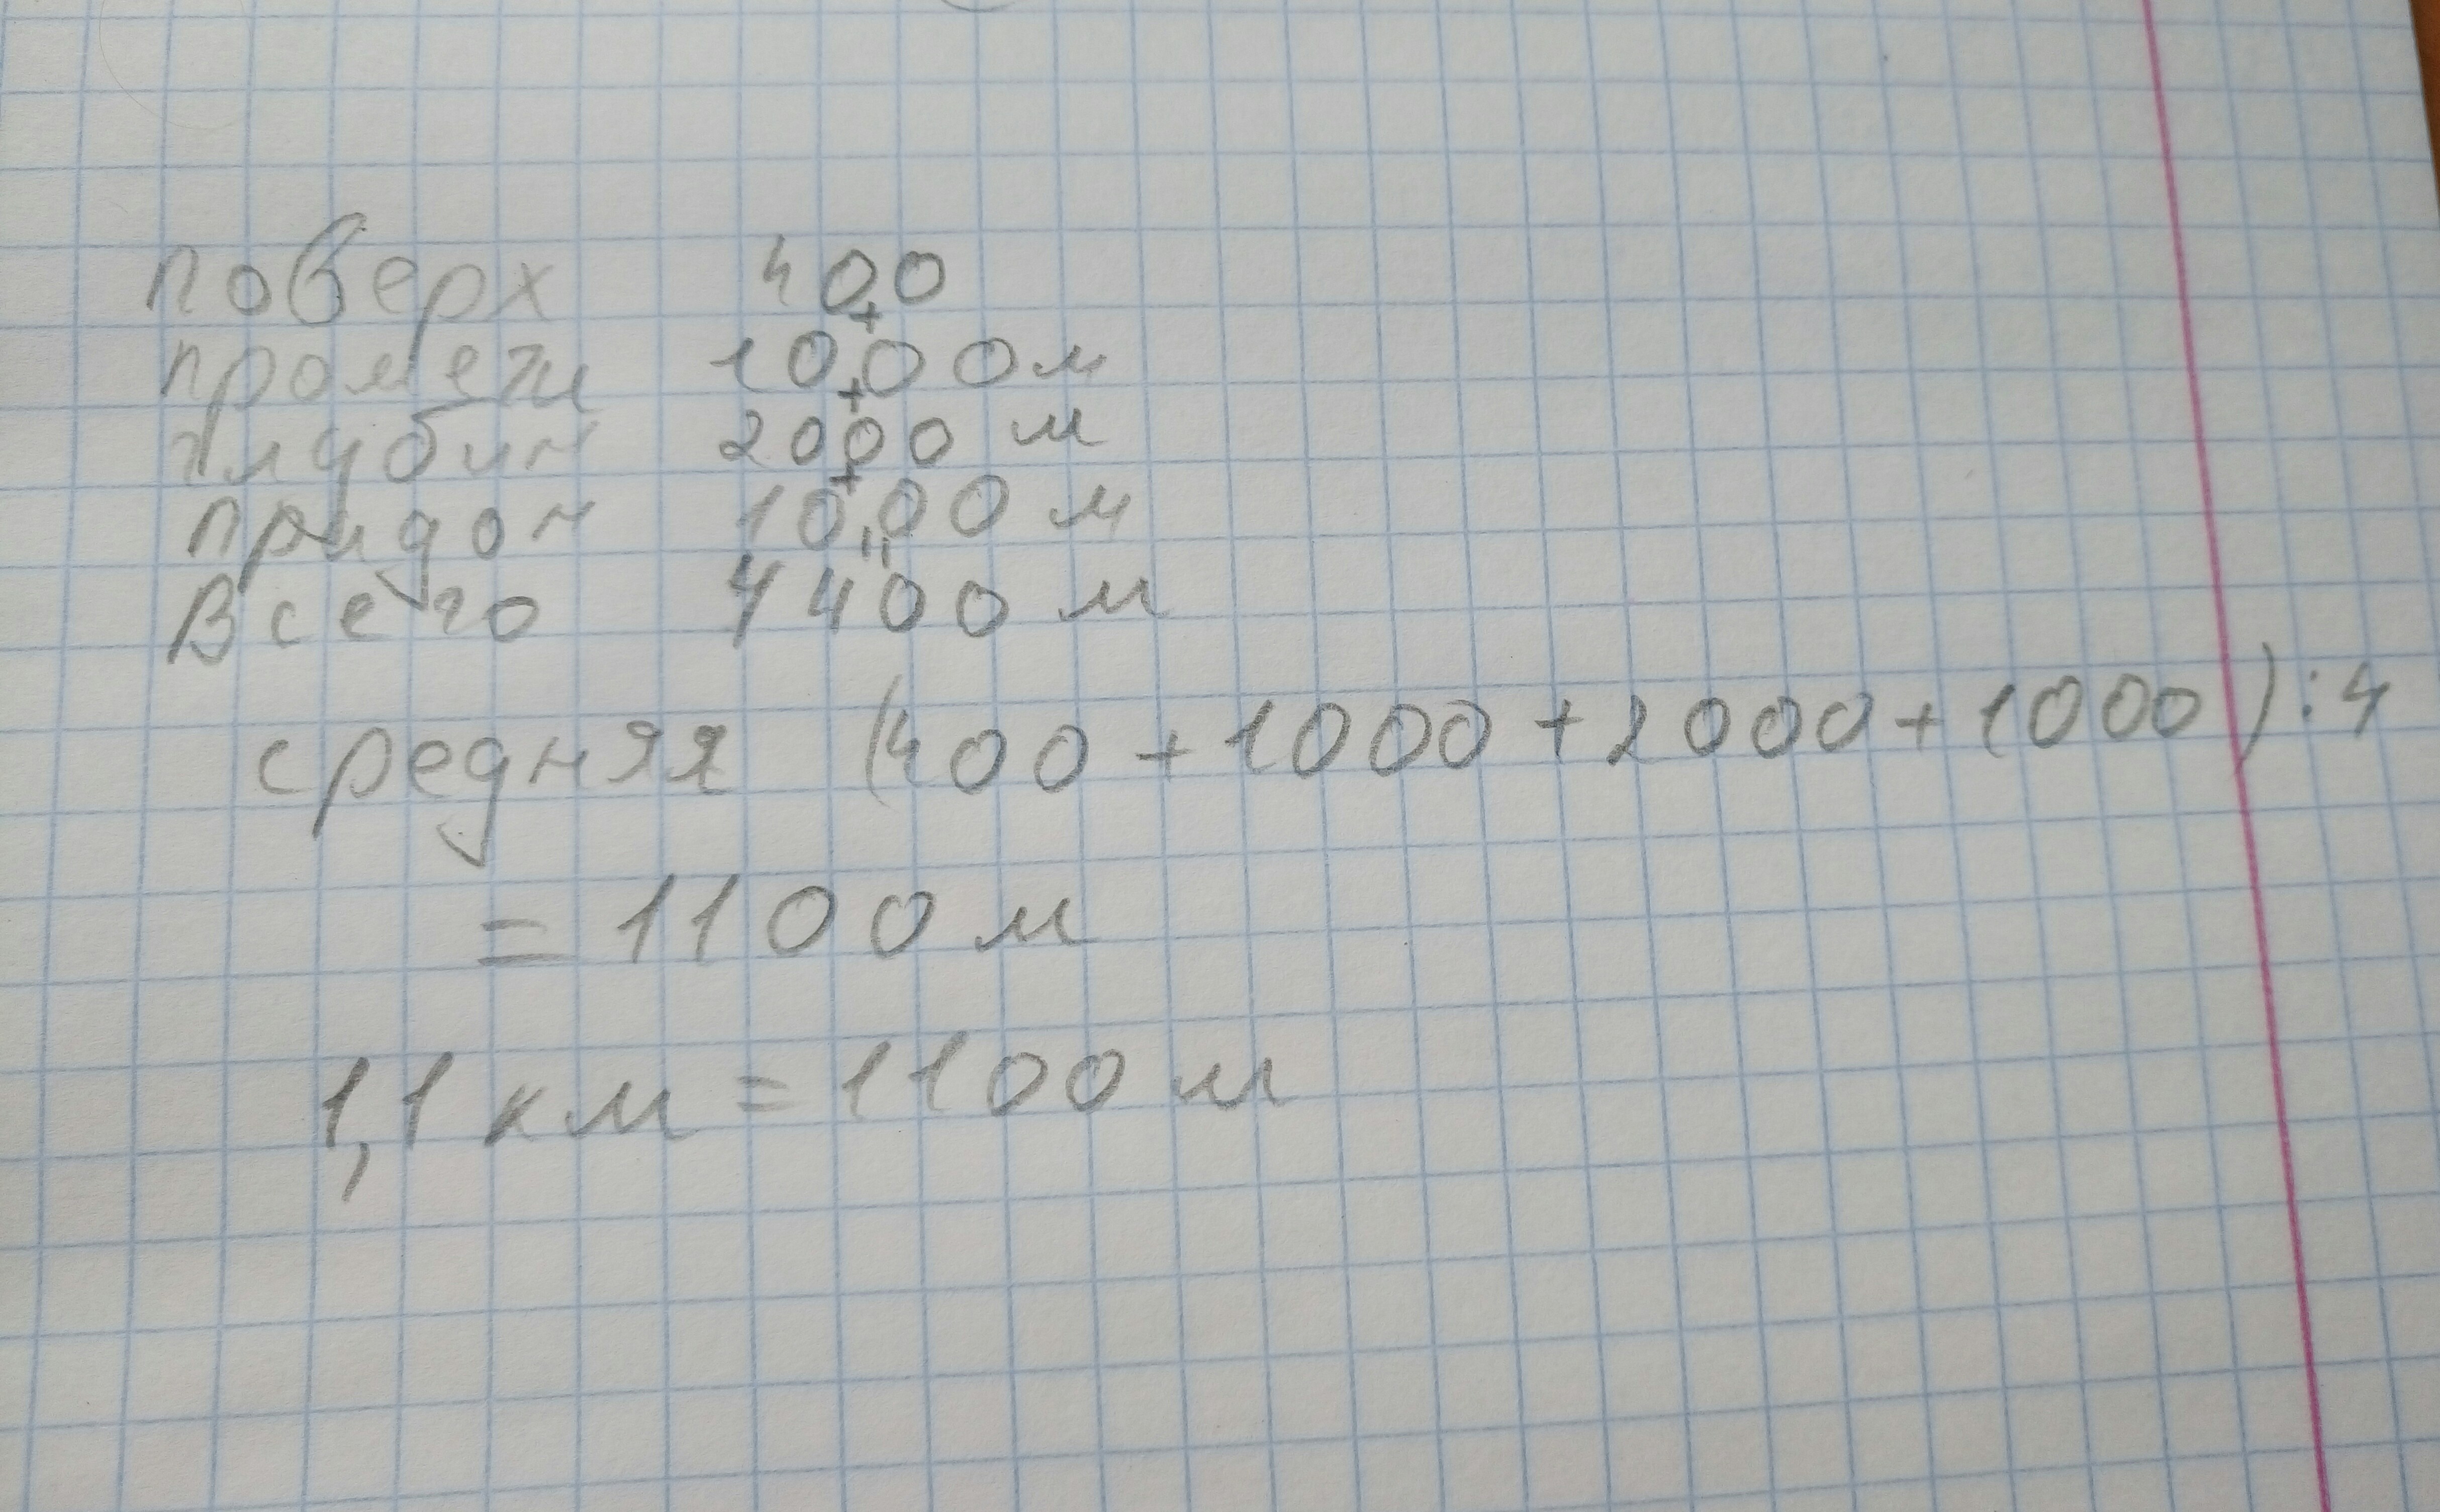 поверх 400
+
промеж 1000 м
+
глубин 2000 м
+
придон 1000 м
=
Всего 4400 м
средняя (400 + 1000 + 2000 + 1000) : 4
= 1100 м
1,1 км = 1100 м